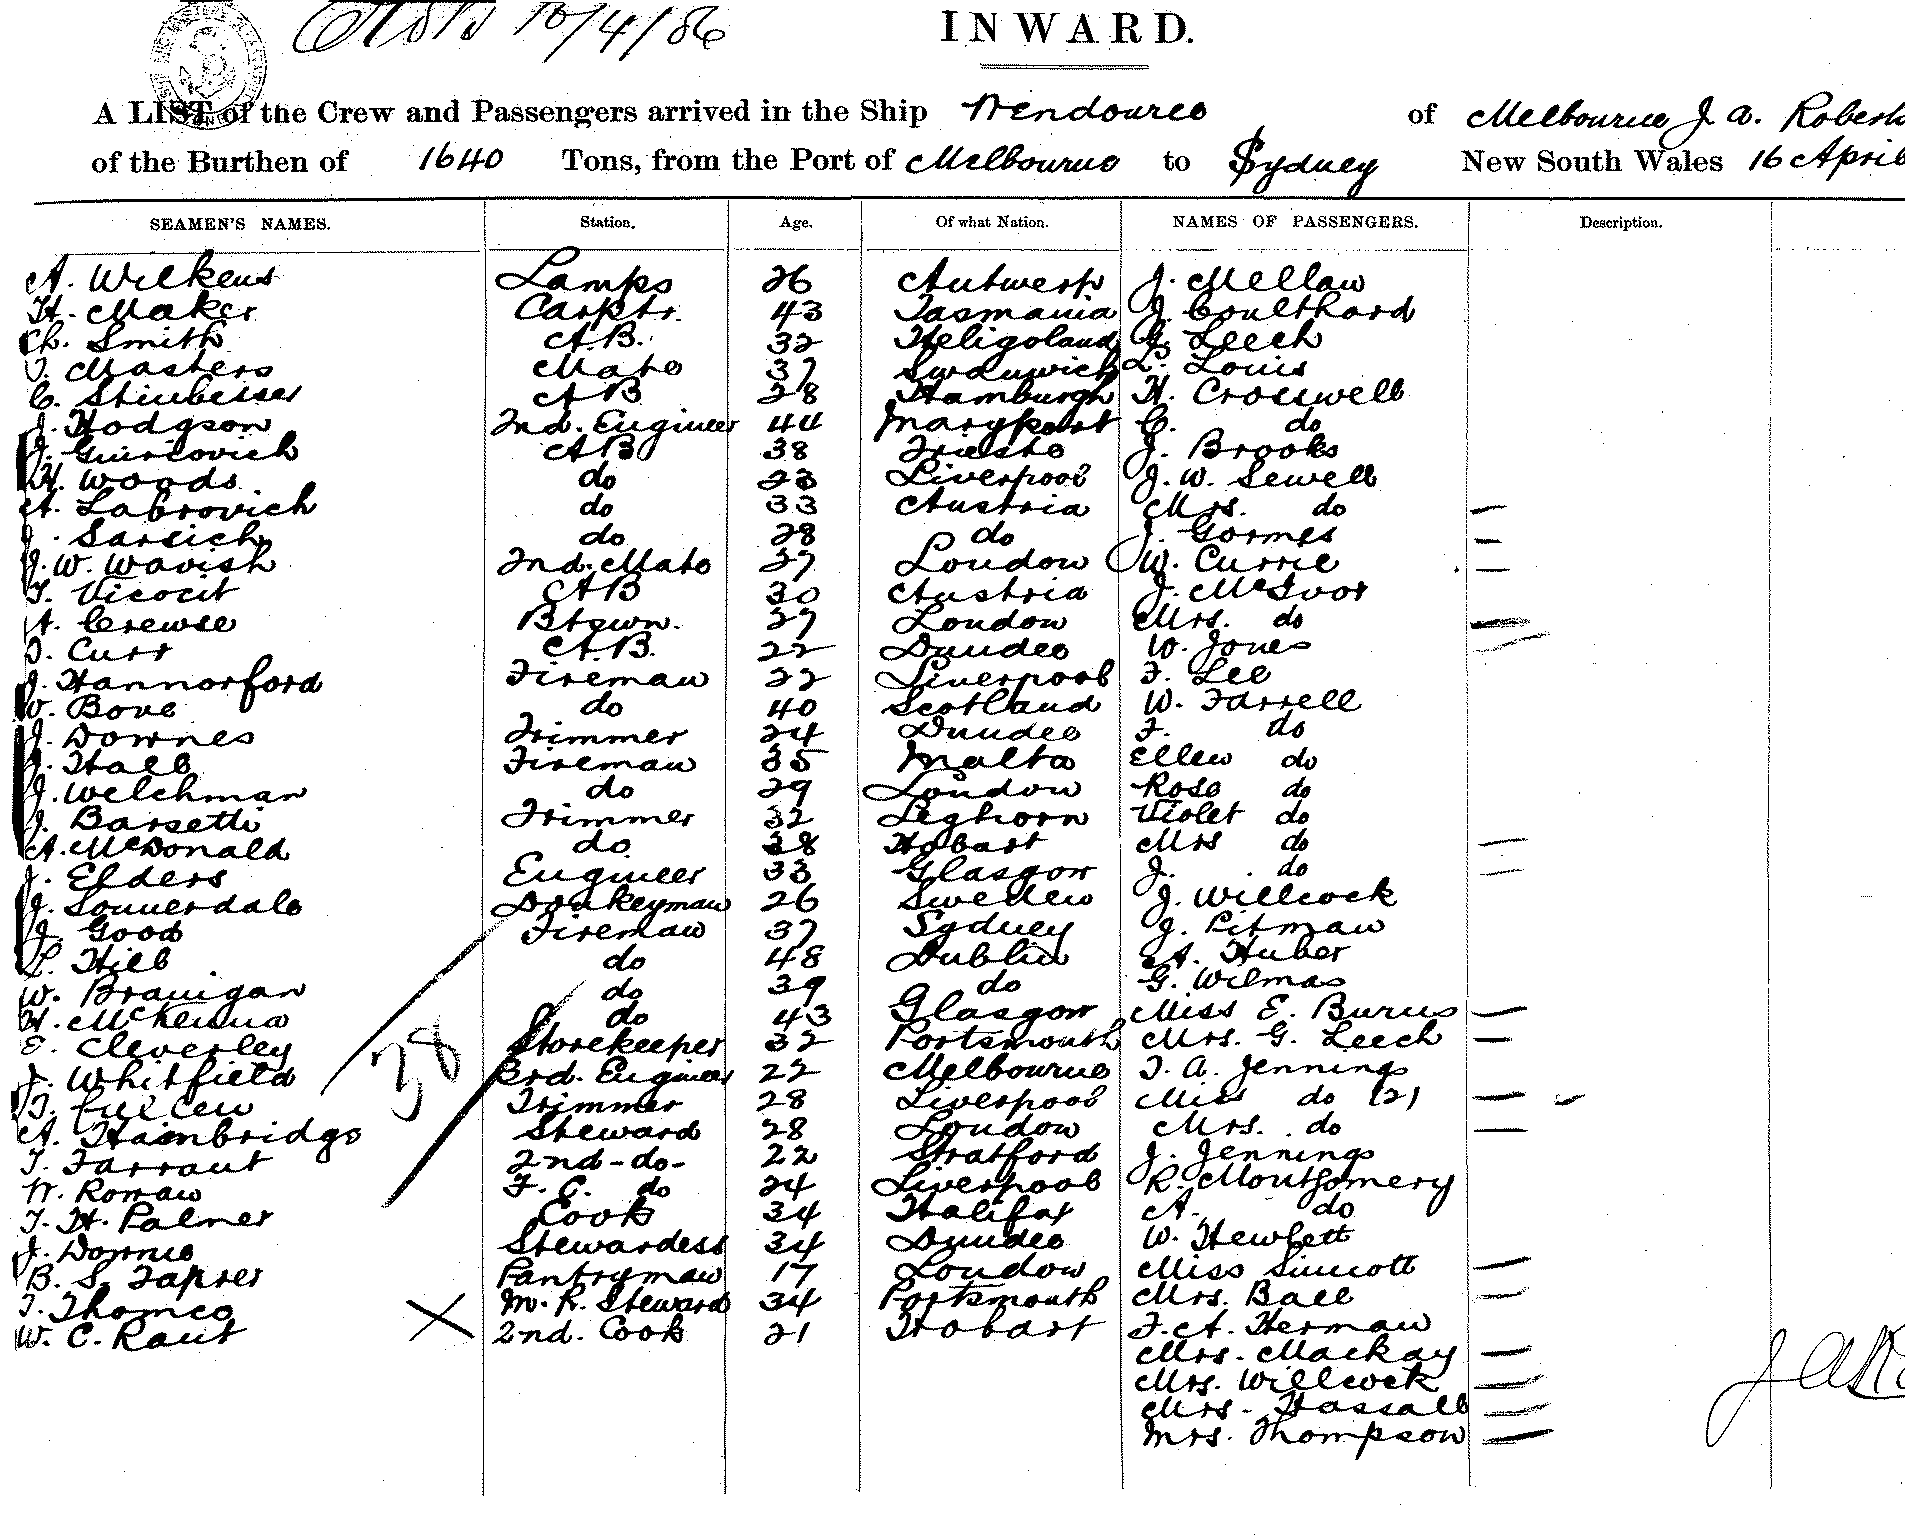 10/4/86
INWARD.
A LIST of the Crew and Passengers arrived in the Ship Wendouree of Melbourne J. A. Roberts
of the Burthen of 1640 Tons, from the Port of Melbourne to Sydney New South Wales 16 April
SEAMEN'S NAMES. Station. Age. Of what Nation. NAMES OF PASSENGERS. Description.
A. Wilkens Lamps 26 Antwerp J. Mellaw
H. Maker Carptr. 43 Tasmania J. Coulthard
Ch. Smith A.B. 32 Heligoland G. Leech
T. Masters Mate 37 L. Louis
C. A B 28 Hamburgh H. Crosswell
J. Hodgson 2nd. Engineer 44 Maryport C. do
J. A B 38 Trieste J. Brooks
H. Woods do 23 Liverpool J. W. Sewell
A. Labrovich do 33 Austria Mrs. do
J. Sarsich do 28 do J. Gormes
J. W. Wavish 2nd. Mate 27 London W. Currie
T. Vicocit A B 30 Austria J. McIvor
A. Crewse Btswn. 27 London Mrs. do
D. Curr A.B. 22 Dundee W. Jones
J. Hannorford Fireman 22 Liverpool F. Lee
W. Bove do 40 Scotland W. Farrell
J. Downes Trimmer 24 Dundee F. do
J. Hall Fireman 35 Malta Ellen do
J. Welchman do 29 London Rose do
J. Barsetti Trimmer 32 Leghorn Violet do
A. McDonald do 38 Hobart Mrs do
J. Elders Engineer 33 Glasgow J. do
J. Sonnerdale Donkeyman 26 Sweden J. Willcock
J. Good Fireman 37 Sydney J. Pitman
L. Hill do 48 Dublin A. Huber
W. Branigan do 39 do G. Wilmas
H. McKenna do 43 Glasgow Miss E. Burns
E. Cleverley Storekeeper 32 Portsmouth Mrs. G. Leech
J. Whitfield 3rd. Engineer 22 Melbourne T. A. Jennings
T. Cullen Trimmer 28 Liverpool Miss do (2)
A. Hambridge Steward 28 London Mrs. do
T. Farrant 2nd-do- 22 Stratford J. Jennings
W. Rowan F. C. do 24 Liverpool R. Montgomery
T. H. Palmer Cook 34 Halifax A. do
J. Downie Stewardess 34 Dundee W. Hewlett
B. S. Pantryman 17 London Miss Simcott
T. Thomes M. R. Steward 34 Portsmouth Mrs. Ball
W. C. Rant 2nd. Cook 21 Hobart F. A. Herman
Mrs. Mackay
Mrs. Willcock
Mrs. Hassall
Mrs. Thompson
38